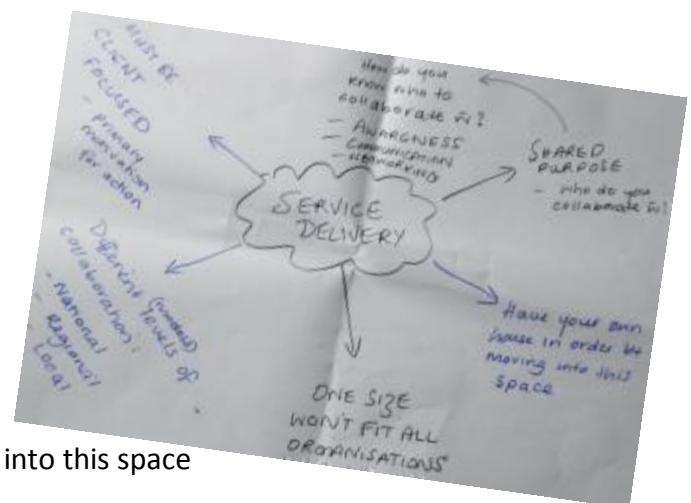 MUST BE
CLIENT
FOCUSED
- primary
motivation
for action
How do you
know who to
collaborate w?
- AWARENESS
- COMMUNICATION
- NETWORKING
SHARED
PURPOSE
- who do you
collaborate w?
SERVICE
DELIVERY
Different
levels of
collaboration:
- National
- Regional
- Local
Have your own
house in order b4
moving into this
space
ONE SIZE
WON'T FIT ALL
ORGANISATIONS
into this space